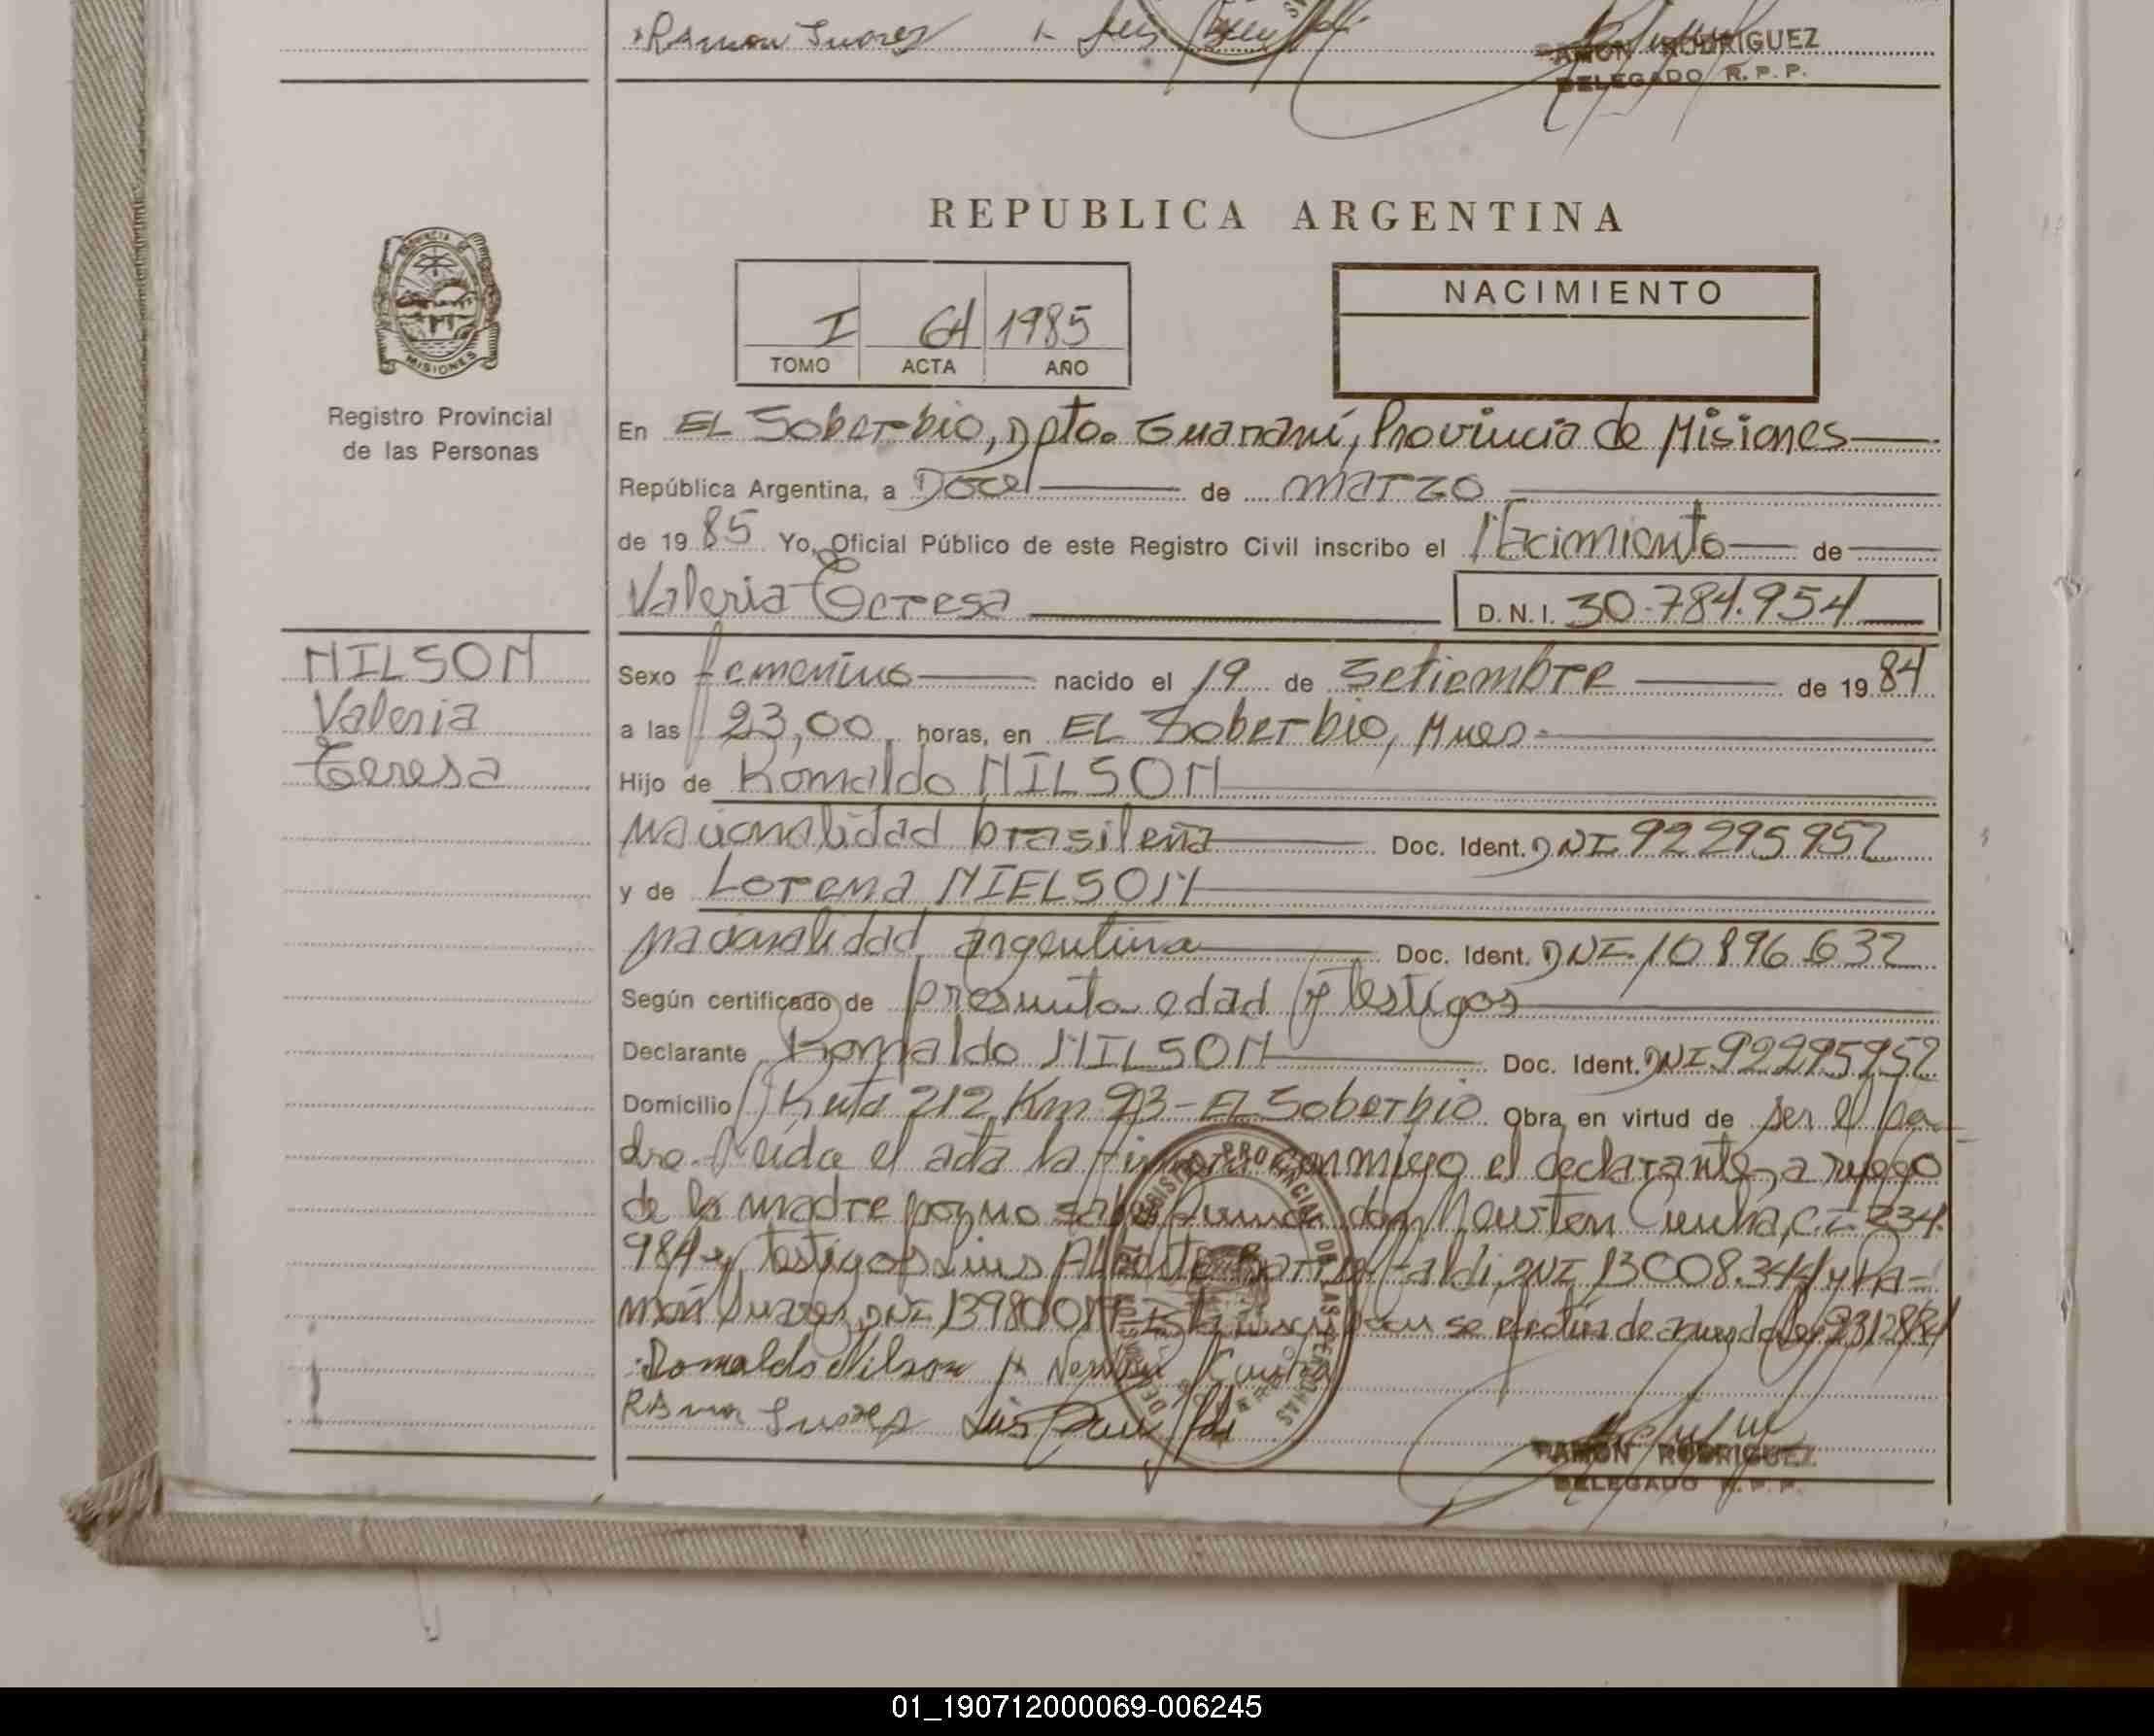 Ramon Suarez
RAMON RODRIGUEZ
DELEGADO R. P. P.
REPUBLICA ARGENTINA
PROVINCIA DE
MISIONES
Registro Provincial
de las Personas
I 64 1985
TOMO ACTA AÑO
NACIMIENTO
En EL Soberbio, Dpto. Guaraní, Provincia de Misiones
República Argentina, a Doce de marzo
de 19 85 Yo, Oficial Público de este Registro Civil inscribo el Nacimiento de
Valeria Teresa D.N.I. 30.784.954
NILSON
Valeria
Teresa
Sexo femenino nacido el 19 de Setiembre de 19 84
a las 23,00 horas, en EL Soberbio, Mnes.
Hijo de Romaldo NILSON
nacionalidad brasileña Doc. Ident. DNI 92295952
y de Lorena NIELSON
nacionalidad argentina Doc. Ident. DNI. 10 896 632
Según certificado de presunta edad y testigos
Declarante Romaldo NILSON Doc. Ident. DNI 92295952
Domicilio Ruta 212 Km 23 - EL Soberbio Obra en virtud de ser el pa-
dre. Leida el acta la firma conmigo el declarante, a ruego
de la madre por no saber firmar don Newton Cunha, C.I. 234.
984 y testigos Luis Alberto DNI 13008.344 y Ra-
món Suarez, DNI 1398001 Esta inscripcion se efectúa de acuerdo ley
Romaldo Nilson Cunha
Ramon Suarez Luis
REGISTRO PROVINCIAL DE LAS PERSONAS
RAMON RODRIGUEZ
DELEGADO R. P. P.
01_190712000069-006245